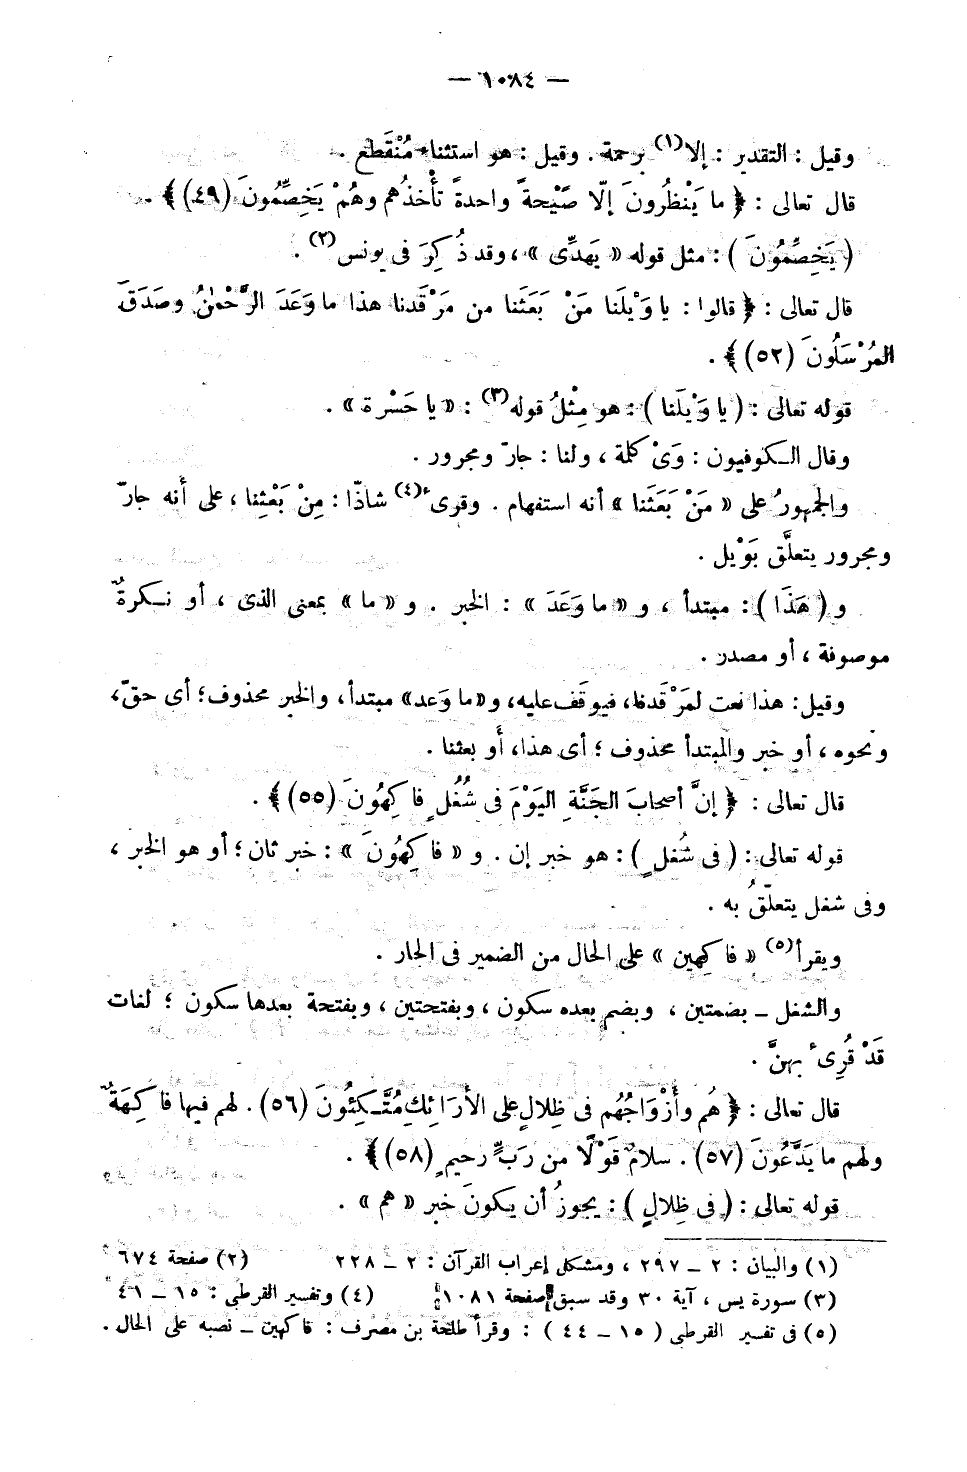 — ١٠٨٤ —
وقيل : التقدير : إلا(١) برحمة . وقيل : هو استثناء مُنْقَطع .
قال تعالى : ﴿ ما يَنْظُرونَ إلّا صَيْحةً واحدةً تأْخذُهم وهُمْ يَخِصِّمُونَ (٤٩) ﴾ .
( يَخِصِّمُونَ ) : مثل قوله « يَهِدِّى » ، وقد ذُكِرَ فى يونس(٢) .
قال تعالى : ﴿ قالوا : يا وَيْلَنا مَنْ بَعَثَنا من مَرْقَدنا هذا ما وَعَدَ الرَّحْمٰنُ وصَدَقَ
المُرْسَلُونَ (٥٢) ﴾ .
قوله تعالى : ( يا وَيْلَنا ) : هو مِثْلُ قوله(٣) : « يا حَسْرة » .
وقال الكوفيون : وَىْ كلمة ، ولنا : جارّ ومجرور .
والجمهورُ على « مَنْ بَعَثَنا » أنه استفهام . وقرىء(٤) شاذّا : مِنْ بَعْثِنا ، على أنه جارّ
ومجرور يتعلَّق بَوْيل .
و ( هَذَا ) : مبتدأ ، و « ما وَعَدَ » : الخبر . و « ما » بمعنى الذى ، أو نكرةٌ
موصوفة ، أو مصدر .
وقيل : هذا نعت لمَرْقَدنا ، فيوقَف عليه ، و « ما وَعد » مبتدأ ، والخبر محذوف ؛ أى حقّ ،
ونحوه ، أو خبر والمبتدأ محذوف ؛ أى هذا ، أو بعثنا .
قال تعالى : ﴿ إنَّ أصحابَ الجَنَّةِ اليَوْمَ فى شُغُلٍ فاكِهُونَ (٥٥) ﴾ .
قوله تعالى : ( فى شُغلٍ ) : هو خبر إن . و « فاكِهُونَ » : خبر ثان ؛ أو هو الخبر ،
وفى شغل يتعلّقُ به .
ويقرأ(٥) « فاكِهين » على الحال من الضمير فى الجار .
والشغل ـ بضمتين ، وبضم بعده سكون ، وبفتحتين ، وبفتحة بعدها سكون ؛ لغات
قَدْ قُرِىء بهنَّ .
قال تعالى : ﴿ هُم وأَزْواجُهُم فى ظِلالٍ على الأَرَائِكِ مُتَّكِئُونَ (٥٦) . لهم فيها فاكِهَةٌ
ولهم ما يَدَّعُونَ (٥٧) . سلامٌ قَوْلًا من رَبٍّ رحيمٍ (٥٨) ﴾ .
قوله تعالى : ( فى ظِلالٍ ) : يجوزُ أن يكونَ خبر « هم » .
(١) والبيان : ٢ ـ ٢٩٧ ، ومشكل إعراب القرآن : ٢ ـ ٢٢٨ (٢) صفحة ٦٧٤
(٣) سورة يس ، آية ٣٠ وقد سبق صفحة ١٠٨١ (٤) وتفسير القرطى : ١٥ ـ ٤١
(٥) فى تفسير القرطى ( ١٥ ـ ٤٤ ) : وقرأ طلحة بن مصرف : فاكهين ـ نصبه على الحال .